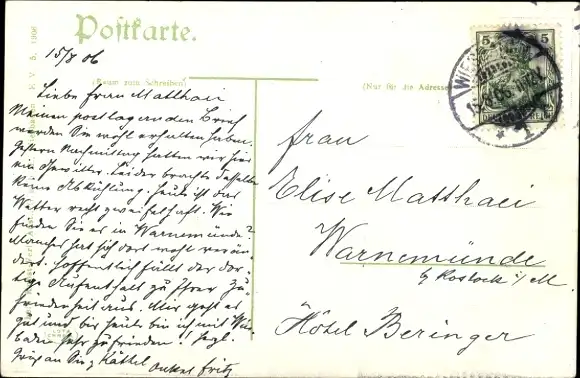 Postkarte.
15/7 06
(Raum zum Schreiben)
(Nur für die Adresse
Liebe Frau Matthaei
Meinen postlagernden Brief
werden Sie wohl erhalten haben.
Gestern Nachmittag hatten wir hier
ein Gewitter. Leider brachte dasselbe
keine Abkühlung. Heute ist das
Wetter recht zweifelhaft. Wie
finden Sie es in Warnemünde?
Manches hat sich dort wohl verän-
dert. Hoffentlich fällt der dor-
tige Aufenthalt zu Ihrer Zu-
friedenheit aus. Mir geht es
gut und bis heute bin ich mit Wies-
baden sehr zufrieden! Herzl.
Gruß an Sie & Käthel
Onkel Fritz
Frau
Elise Matthaei
Warnemünde
b/ Rostock i/M
Hôtel Beringer
5 5